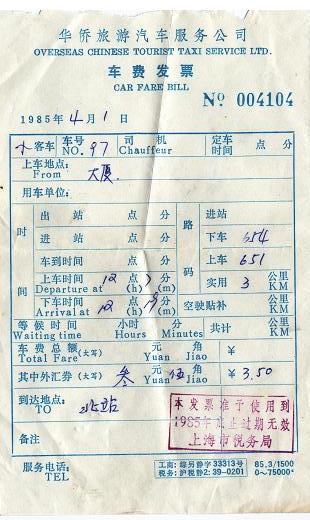 华侨旅游汽车服务公司
OVERSEAS CHINESE TOURIST TAXI SERVICE LTD.
车费发票
CAR FARE BILL
Nº 004104
1985年4月1日
客车 车号 NO. 97 司机 Chauffeur 定车时间 点 分
上车地点: From 大厦.
用车单位:
时间 出站 点 分 路码 进站
进站 点 分 下车 654
车到时间 点 分 上车 651
上车时间 Departure at 12 点(h) 分(m) 实用 3 公里 KM
下车时间 Arrival at 12 点(h) 分(m) 空驶贴补 公里 KM
等候时间 Waiting time 小时 Hours 分 Minutes 共计 公里 KM
车费总额(大写) Total Fare 元 Yuan 角 Jiao ¥
其中外汇券(大写) 叁元 Yuan 伍角 Jiao ¥ 3.50
到达地点: TO 北站
本发票准予使用到
1985年底止过期无效
上海市税务局
备注
服务电话: TEL
工商:综另静字33313号
税务:沪税静2:39-0201
85,3/1500
0~75000*